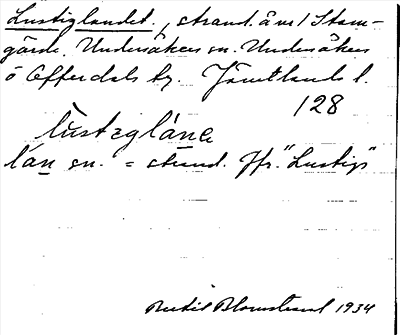 Lustiglandet., strand å nr 1 Stam-
gärde. Undersåkers sn. Undersåkers
o Offerdals tg. Jämtlands l.
128
lùsteglánɛ
lán sn. = strand. Jfr. "Lustigs"
Bertil Blomstrand 1934